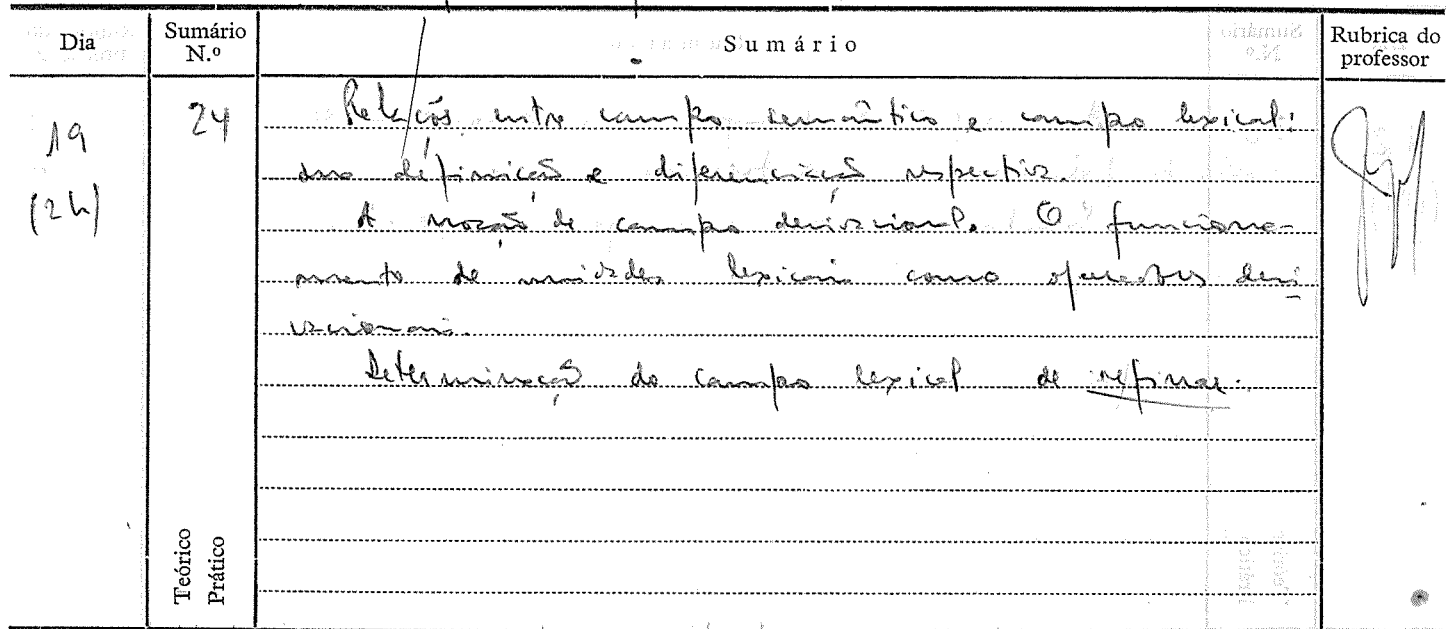 Dia
Sumário N.º
Sumário
Rubrica do professor
19
(2h)
24
Relações entre campo semântico e campo lexical:
sua definição e diferenciação respectiva.
A noção de campo derivacional. O funciona-
mento de unidades lexicais como operadores deri
vacionais.
Determinação do campo lexical de
Teórico
Prático